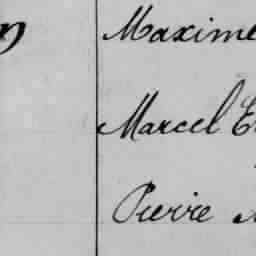 Maxime
Marcel
Pierre